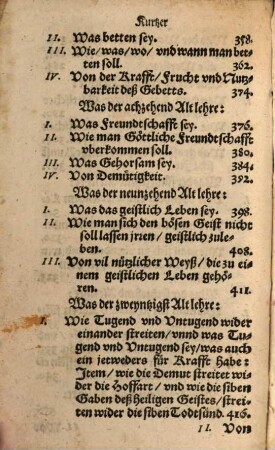 Kurtzer
II. Was betten sey. 358.
III. Wie/was/wo/ vnd wann man bet-
ten soll. 362.
IV. Von der Krafft/ Frucht vnd Nutz-
barkeit deß Gebetts. 374.
Was der achzehend Alt lehre:
I. Was Freundtschafft sey. 376.
II. Wie man Göttliche Freundtschafft
vberkommen soll. 380.
III. Was Gehorsam sey. 384.
IV. Von Demütigkeit. 392.
Was der neunzehend Alt lehre:
I. Was das geistlich Leben sey. 398.
II. Wie man sich den bösen Geist nicht
soll lassen jrien/ geistlich zule-
ben. 408.
III. Von vil nützlicher Weyß/ die zu ei-
nem geistlichen Leben gehö-
ren. 411.
Was der zweyntzigst Alt lehre:
I. Wie Tugend vnd Vntugend wider
einander streiten/ vnnd was Tu-
gend vnd Vntugend sey/ was auch
ein jetweders für Krafft habe:
Jtem/ wie die Demut streitet wi-
der die Hoffart/ vnd wie die siben
Gaben deß Heiligen Geistes/ strei-
ten wider die siben Todtsünd. 416.
II. Von